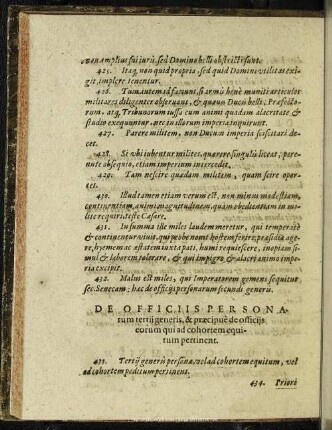 non amplius sui iuris, sed Domino belli obstricti sunt.
425. Itaq; non quid propria, sed quid Domini vtilitas exigit,
implere tenentur.
426. Tum autem id faciunt, si armis bene muniti articulos
militares diligenter obseruant, & quoun Ducis belli, Præfectorum,
atq; Tribunorum iussa cum animi quadam alacritate &
studio exequuntur, nec in illorum imperia inquirunt.
427. Parere militem, non Ducum imperia sciscitari decet.
428. Si vbi iubentur milites, quærere singulis liceat, pereunte
obsequio, etiam imperium intercidit.
429. Tam nescire quædam militem, quam scire oportet.
430. Illud tamen etiam verum est, non minus modestiam,
continentiam, animi magnitudinem, quam in
milite requiri, teste Cæsare.
431. In summa ille miles laudem meretur, qui temperatè
& continenter viuit, qui probè nouit hostem ferire, præsidia agere,
hyemem ac æstatem iuxta pati, humi requiescere, inopiam simul
& laborem tolerare, & qui impigro & alacri animo imperia
excipit.
432. Malus est miles, qui Imperatorem gemens sequitur
sec. Senecam; hæc de officijs personarum secundi generis.
DE OFFICIIS PERSONArum
tertij generis, & præcipuè de officijs
eorum qui ad cohortem equitum
pertinent.
433. Tertij generis personæ, vel ad cohortem equitum, vel
ad cohortem peditum pertinent.
434. Priori